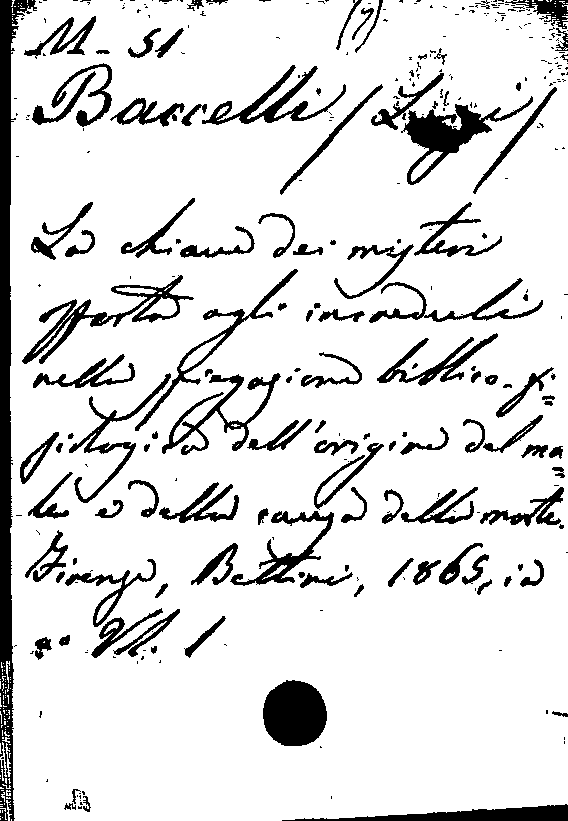 (7)
M - 51
Baccelli / Luigi /
La chiave dei misteri
offerta agli increduli
nella spiegazione biblico-fi=
siologica dell'origine del ma=
le e della causa della morte.
Firenze, Bettini, 1865, in
Vol. 1